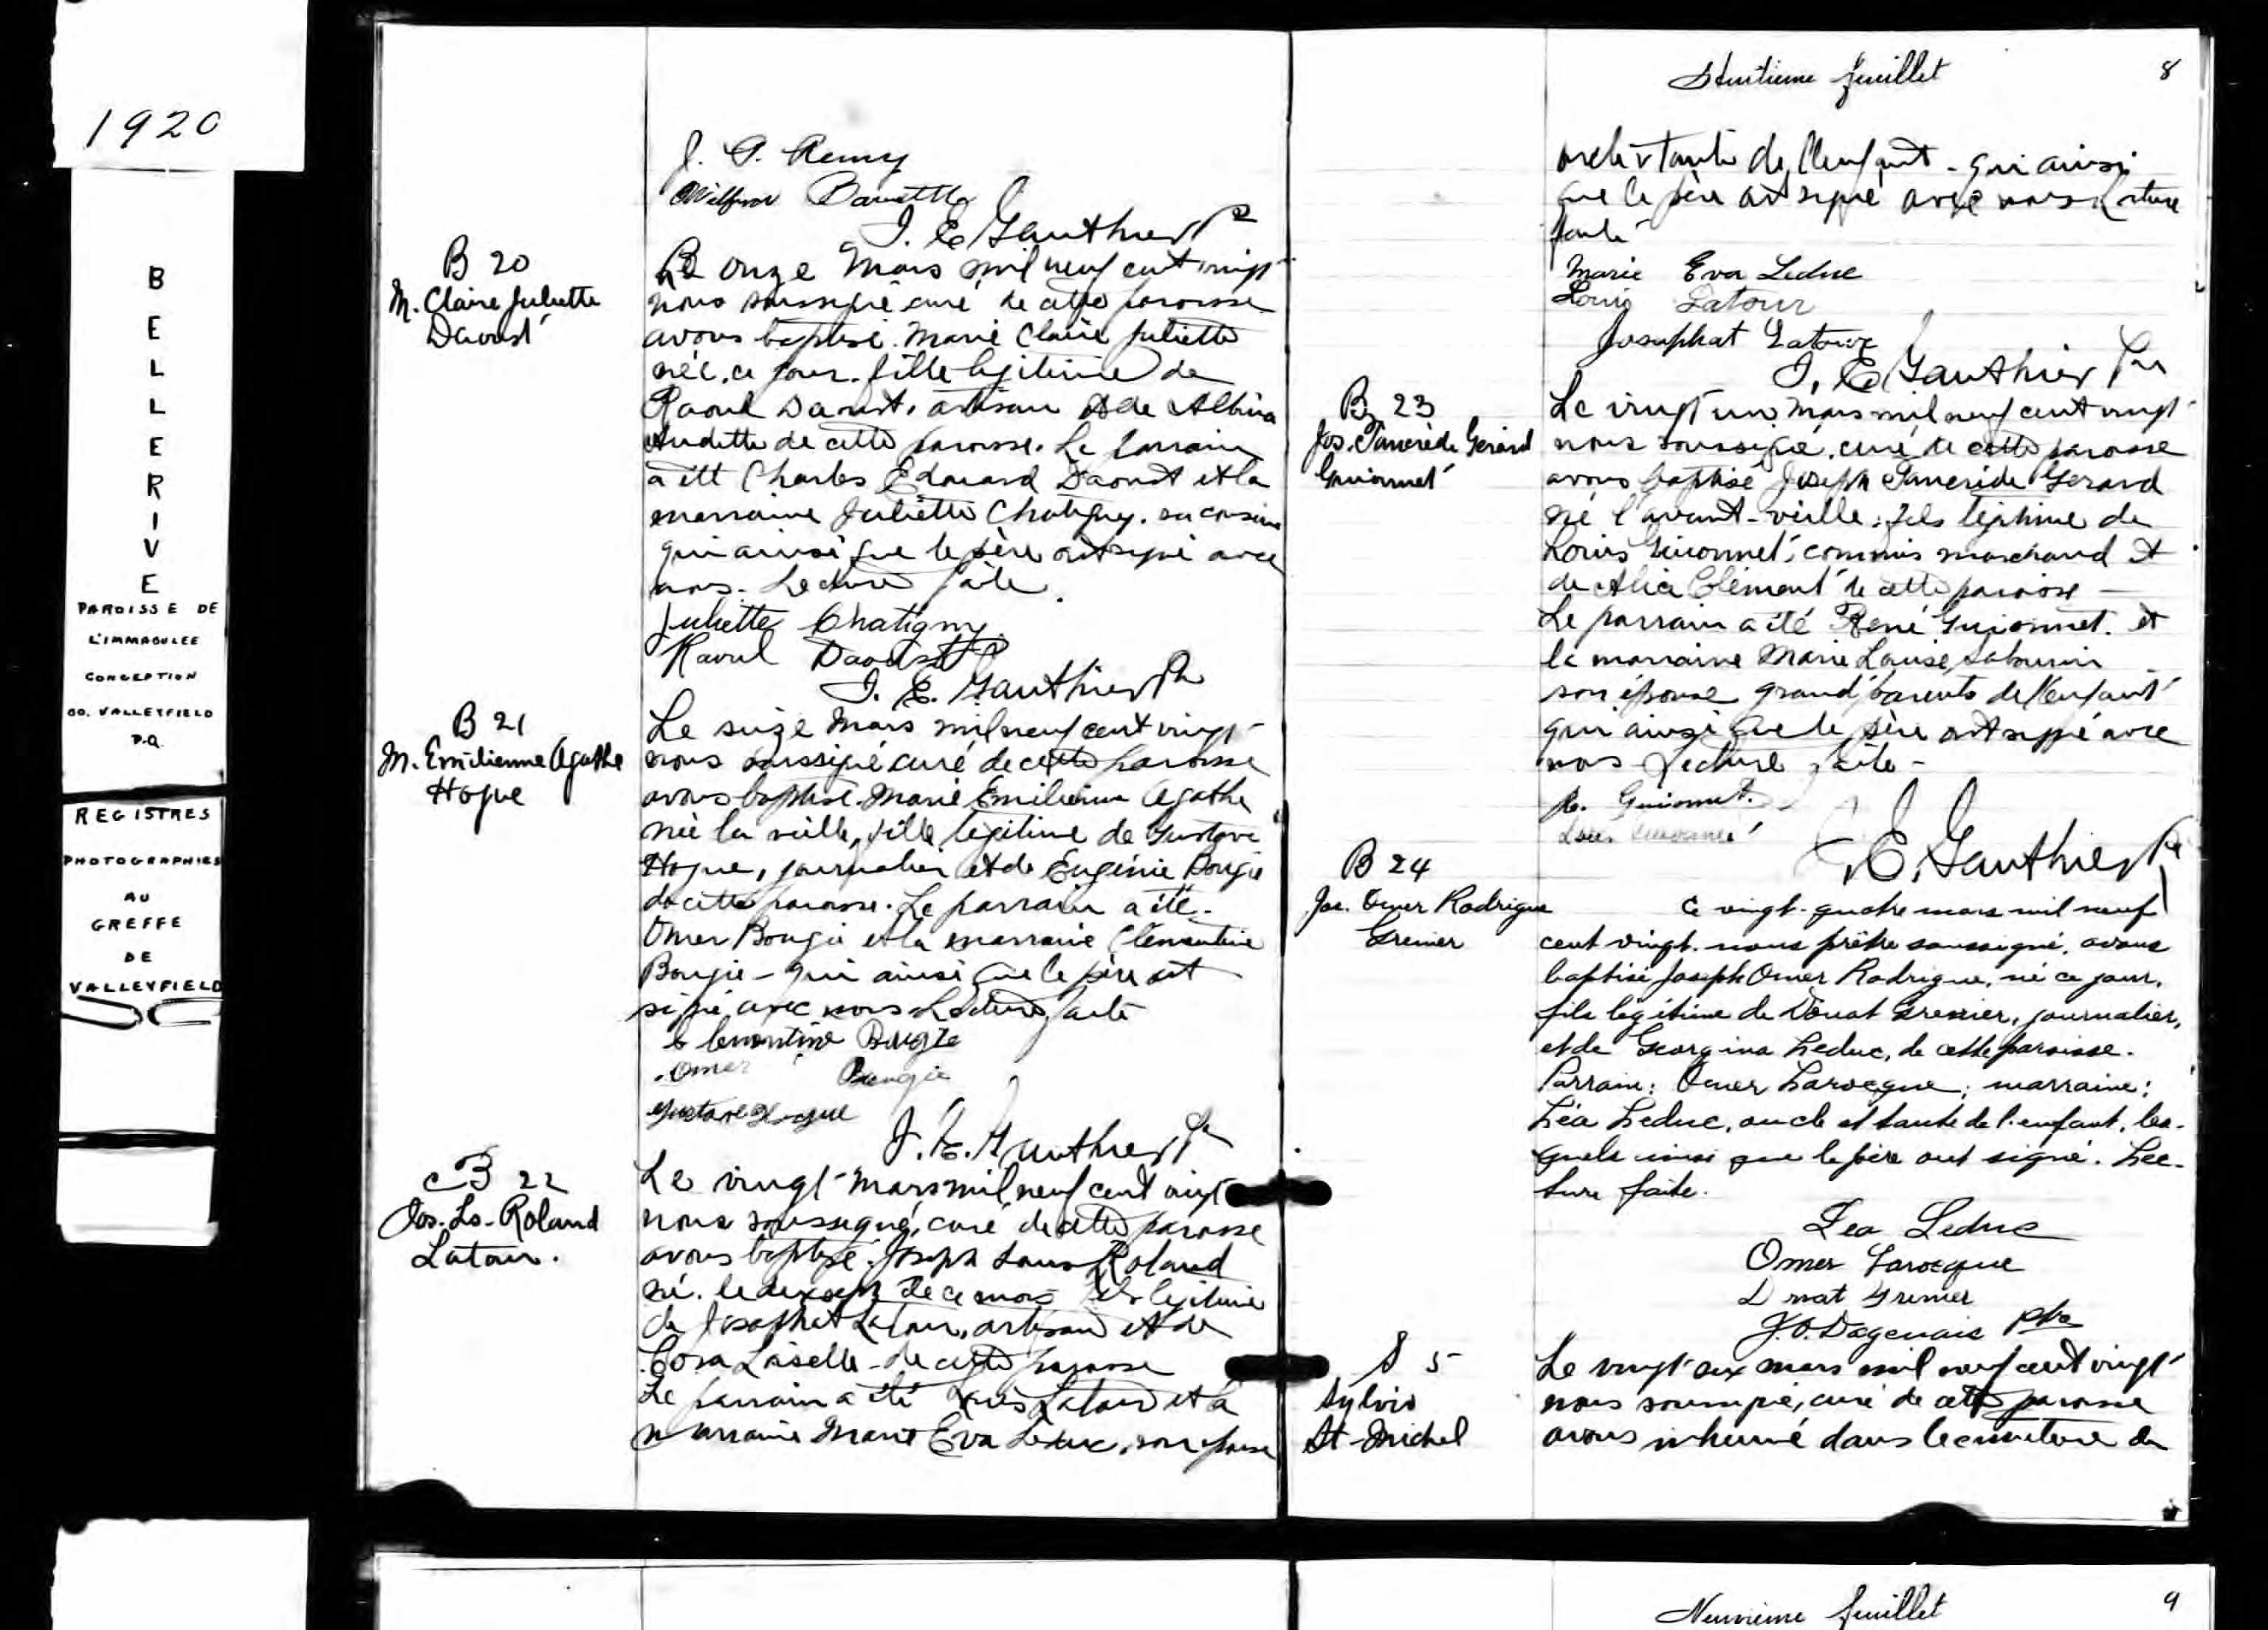 1920
B
E
L
L
E
R
I
V
E
PAROISSE DE
L'IMMACULEE
CONCEPTION
CO. VALLEYFIELD
P.Q.
REGISTRES
PHOTOGRAPHIES
AU
GREFFE
DE
VALLEYFIELD
J. E. Gauthier Ptr
B 20
M. Claire Juliette
Daoust
Le onze Mars mil neuf cent vingt
nous soussigné curé de cette paroisse
avons baptisé Marie Claire Juliette
née ce jour fille légitime de
Raoul Daoust, artisan et de Albina
Audette de cette paroisse. Le parrain
a été Charles Edouard Daoust et la
marraine Juliette Chatigny. sa cousine
qui ainsi que le père ont signé avec
nous. Lecture faite.
Juliette Chatigny
Raoul Daoust
J. E. Gauthier Ptr
B 21
M. Emilienne Agathe
Hogue
Le seize Mars mil neuf cent vingt
nous soussigné curé de cette paroisse
avons baptisé Marie Emilienne Agathe
née la veille, fille légitime de Gustave
Hogue, journalier et de Eugénie Bougie
de cette paroisse. Le parrain a été
Omer Bougie et la marraine Clémentine
Bougie - qui ainsi que le père ont
signé avec nous Lecture faite
Clementine Bougie
Omer Bougie
Gustave Hogue
J. E. Gauthier Ptr
B 22
Jos. Ls. Roland
Latour.
Le vingt Mars mil neuf cent vingt
nous soussigné, curé de cette paroisse
avons baptisé Joseph Louis Roland
né le dix sept de ce mois fils légitime
de Josaphat Latour, artisan et de
Loiselle de cette paroisse
Le parrain a été Louis Latour et la
marraine Marie Eva Leduc, son épouse
Huitieme feuillet 8
oncle et tante de l'enfant - qui ainsi
que le père ont signé avec nous Lecture
faite
Marie Eva Leduc
Louis Latour
Josaphat Latour
J. E. Gauthier Ptr
B 23
Jos. Tancrède Gérard
Guionnet
Le vingt un Mars mil neuf cent vingt
nous soussigné, curé de cette paroisse
avons baptisé Joseph Tancrède Gerard
né l'avant-veille, fils légitime de
Louis Guionnet, commis marchand et
de Alice Clément de cette paroisse -
Le parrain a été René Guionnet et
la marraine Marie Louise Sabourin
son épouse grand parents de l'enfant
qui ainsi que le père ont signé avec
nous Lecture faite -
R. Guionnet.
Louis Guionnet
J. E. Gauthier Ptr
B 24
Jos. Omer Rodrigue
Grenier
Ce vingt-quatre mars mil neuf
cent vingt, nous prêtre soussigné, avons
baptisé Joseph Omer Rodrigue, né ce jour,
fils légitime de Donat Grenier, journalier,
et de Georgina Leduc, de cette paroisse.
Parrain: Omer Larocque; marraine:
Léa Leduc, oncle et tante de l'enfant, les-
quels ainsi que le père ont signé. Lec-
ture faite.
Lea Leduc
Omer Larocque
Donat Grenier
J. O. Dagenais Ptre
S 5
Sylvio
St-Michel
Le vingt six mars mil neuf cent vingt
nous soussigné, curé de cette paroisse
avons inhumé dans le cimetière de
Neuvieme feuillet 9